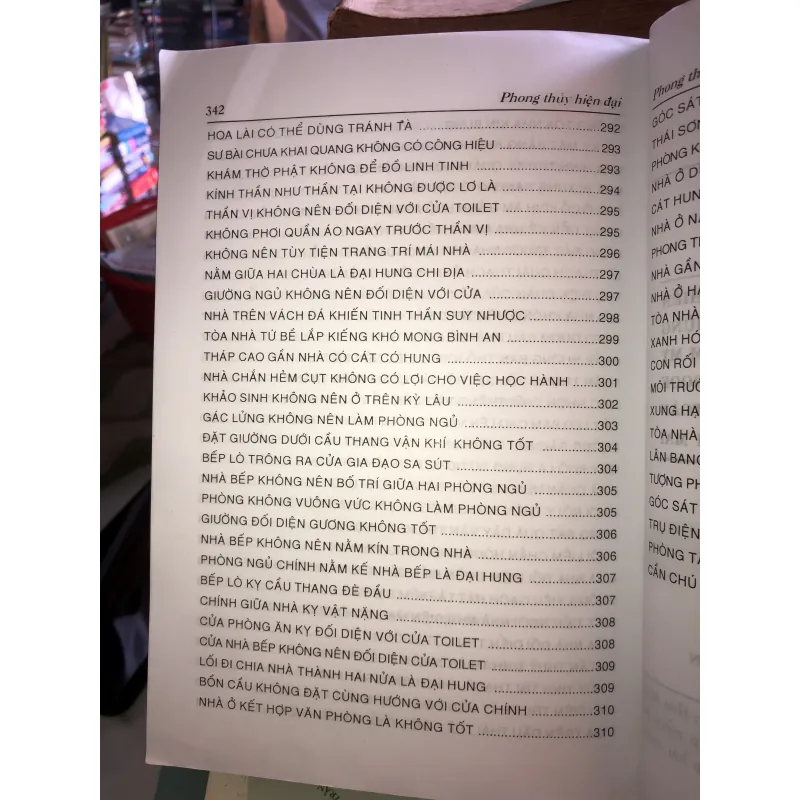 342 Phong thủy hiện đại
HOA LÀI CÓ THỂ DÙNG TRÁNH TÀ ........ 292
SƯ BÀI CHƯA KHAI QUANG KHÔNG CÓ CÔNG HIỆU ........ 293
KHÁM THỜ PHẬT KHÔNG ĐỂ ĐỒ LINH TINH ........ 293
KÍNH THẦN NHƯ THẦN TẠI KHÔNG ĐƯỢC LƠ LÀ ........ 294
THẦN VỊ KHÔNG NÊN ĐỐI DIỆN VỚI CỬA TOILET ........ 295
KHÔNG PHƠI QUẦN ÁO NGAY TRƯỚC THẦN VỊ ........ 295
KHÔNG NÊN TÙY TIỆN TRANG TRÍ MÁI NHÀ ........ 296
NẰM GIỮA HAI CHÙA LÀ ĐẠI HUNG CHI ĐỊA ........ 297
GIƯỜNG NGỦ KHÔNG NÊN ĐỐI DIỆN VỚI CỬA ........ 297
NHÀ TRÊN VÁCH ĐÁ KHIẾN TINH THẦN SUY NHƯỢC ........ 298
TÒA NHÀ TỨ BỀ LẮP KIẾNG KHÓ MONG BÌNH AN ........ 299
THÁP CAO GẦN NHÀ CÓ CÁT CÓ HUNG ........ 300
NHÀ CHẮN HẺM CỤT KHÔNG CÓ LỢI CHO VIỆC HỌC HÀNH ........ 301
KHẢO SINH KHÔNG NÊN Ở TRÊN KỲ LÂU ........ 302
GÁC LỬNG KHÔNG NÊN LÀM PHÒNG NGỦ ........ 303
ĐẶT GIƯỜNG DƯỚI CẦU THANG VẬN KHÍ KHÔNG TỐT ........ 304
BẾP LÒ TRÔNG RA CỬA GIA ĐẠO SA SÚT ........ 304
NHÀ BẾP KHÔNG NÊN BỐ TRÍ GIỮA HAI PHÒNG NGỦ ........ 305
PHÒNG KHÔNG VUÔNG VỨC KHÔNG LÀM PHÒNG NGỦ ........ 305
GIƯỜNG ĐỐI DIỆN GƯƠNG KHÔNG TỐT ........ 306
NHÀ BẾP KHÔNG NÊN NẰM KÍN TRONG NHÀ ........ 306
PHÒNG NGỦ CHÍNH NẰM KẾ NHÀ BẾP LÀ ĐẠI HUNG ........ 307
BẾP LÒ KỴ CẦU THANG ĐÈ ĐẦU ........ 307
CHÍNH GIỮA NHÀ KỴ VẬT NẶNG ........ 308
CỬA PHÒNG ĂN KỴ ĐỐI DIỆN VỚI CỬA TOILET ........ 308
CỬA NHÀ BẾP KHÔNG NÊN ĐỐI DIỆN CỬA TOILET ........ 309
LỐI ĐI CHIA NHÀ THÀNH HAI NỬA LÀ ĐẠI HUNG ........ 309
BỒN CẦU KHÔNG ĐẶT CÙNG HƯỚNG VỚI CỬA CHÍNH ........ 310
NHÀ Ở KẾT HỢP VĂN PHÒNG LÀ KHÔNG TỐT ........ 310
Phong
GÓC SÁT
THÁI SƠN
PHÒNG
NHÀ Ở
CÁT HUN
NHÀ Ở
PHONG
NHÀ GẦN
NHÀ Ở
TÒA NHÀ
XANH
CON RỐI
MÔI TRƯỜ
XUNG HẠ
TÒA NHÀ
LÂN BANG
TƯỢNG
GÓC SÁT
TRỤ ĐIỆN
PHÒNG
CẦN CHÚ